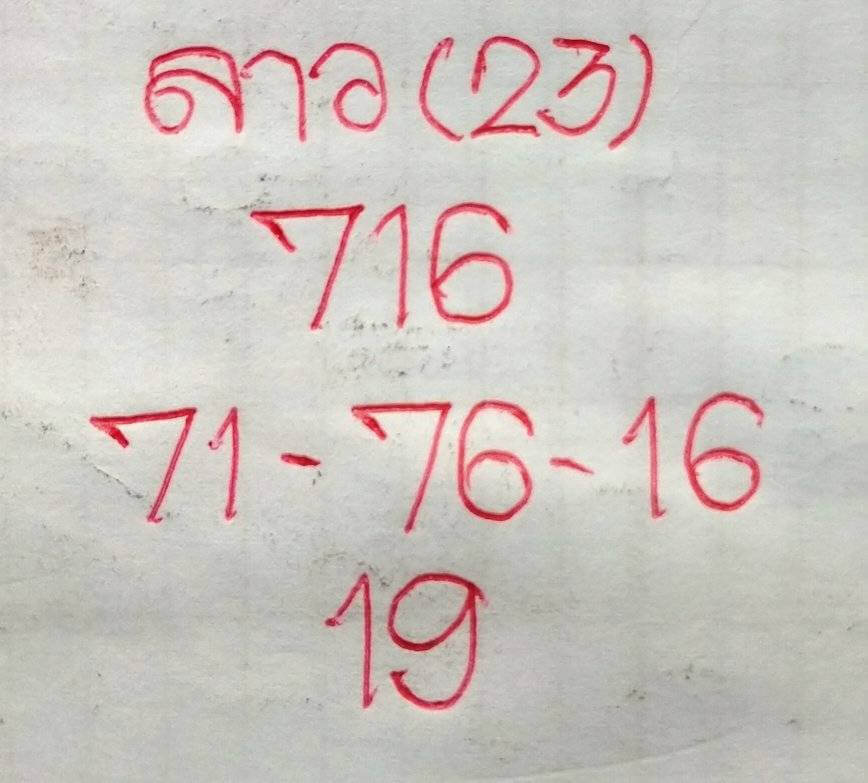 ลาว (23)
716
71 - 76 - 16
19